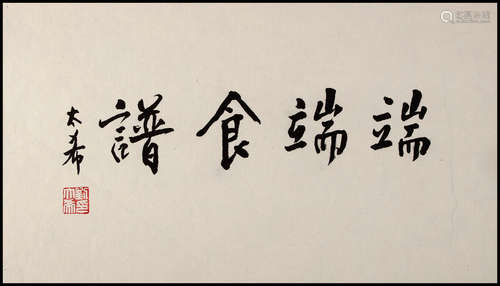 端端食譜
太希